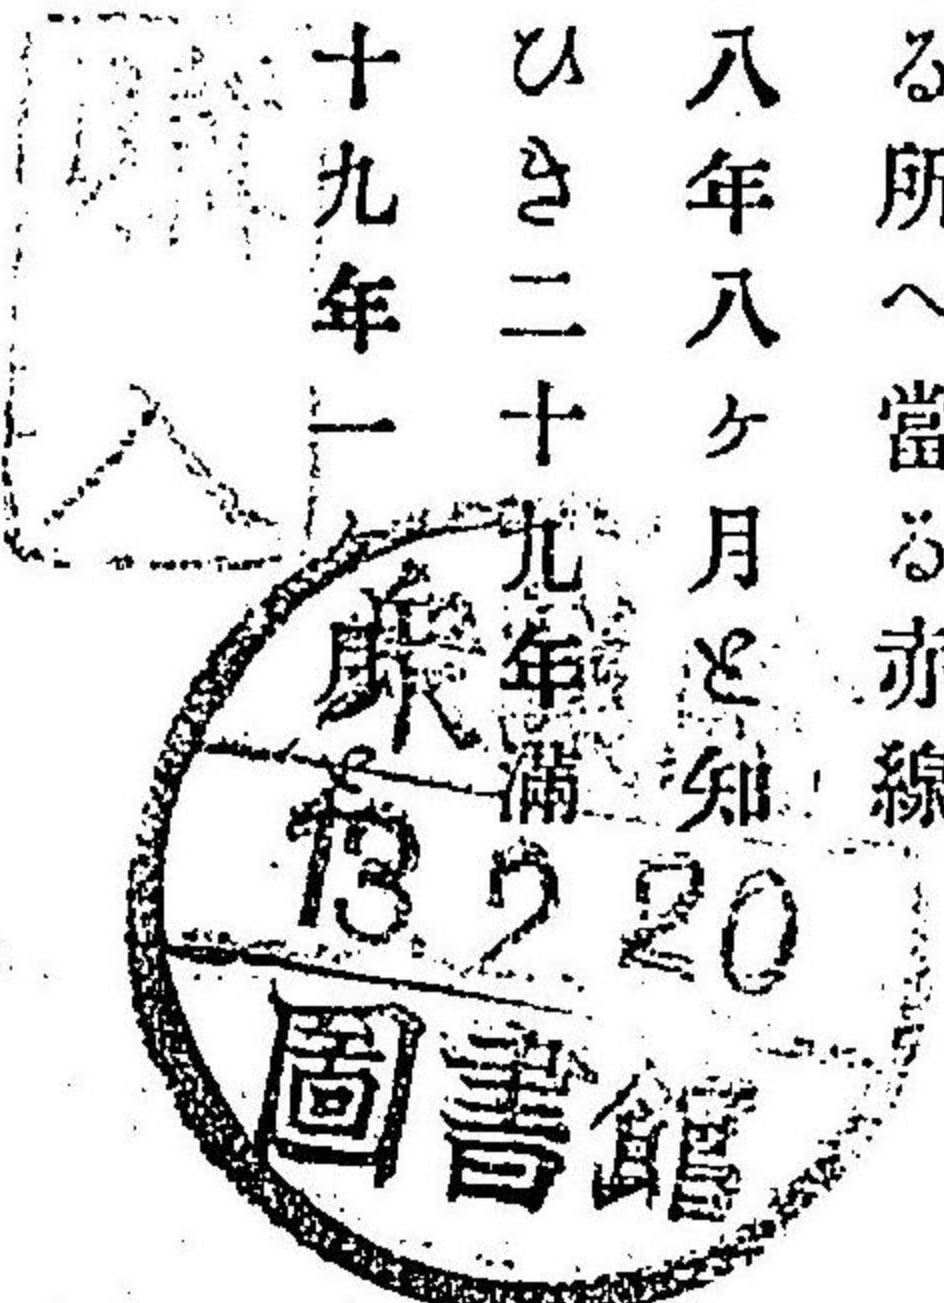 る所へ當る赤線
八年八ヶ月と知
ひき二十九年滿
十九年一
13 2 20
圖書館